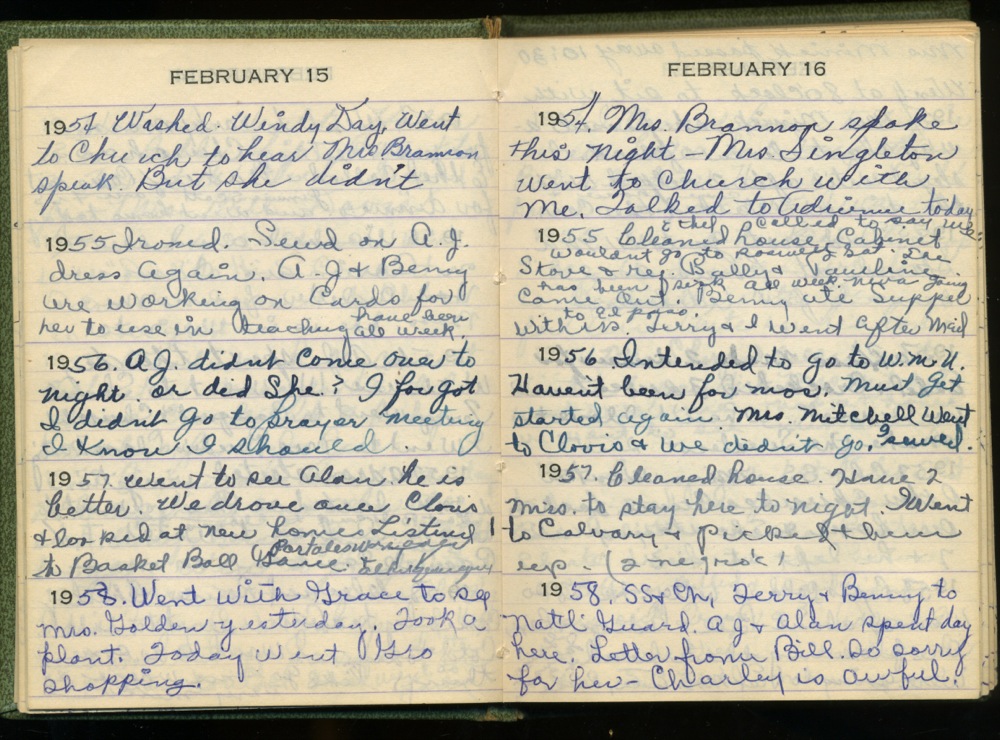 FEBRUARY 15
1954 Washed. Windy Day, Went
to Church to hear Mrs Brannon
speak. But she didn't
1955 Ironed. Sewd on A.J.
dress again. A.J & Benny
are working on Cards for
her to use in teaching have been
all week.
1956. A J. didnt come over to
night. or did She? I forgot
I didn't go to prayer meeting
I know I should.
1957. went to see Alan he is
better. We drove over Clovis
& looked at new homes Listened
to Basket Ball Game. Portales
1958. Went with Grace to see
Mrs. Golden yesterday. Took a
plant. Today went Gro
shopping.
FEBRUARY 16
1954. Mrs. Brannon spoke
this night - Mrs. Singleton
went to Church with
me. Talked to today
1955 Cleaned house, Cabinet
they called to say
wouldn't go to Sat.
Stove & ref. Bally & Pauline
has been sick all week. going
came out. Benny ate supper
to El paso.
with us. Jerry & I went after mail
1956. Intended to go to W.M.U.
Havent been for mos. Must get
started again. Mrs. Mitchell went
to Clovis & we didn't go. I sewed.
1957. Cleaned house. Have 2
Miss. to stay here to night. I went
to Calvary & picked them
up. (2 negro's)
1958. SS & Ch. Jerry & Benny to
Natl Guard. A J & Alan spent day
here. Letter from Bill. So sorry
for her - Charley is awful.